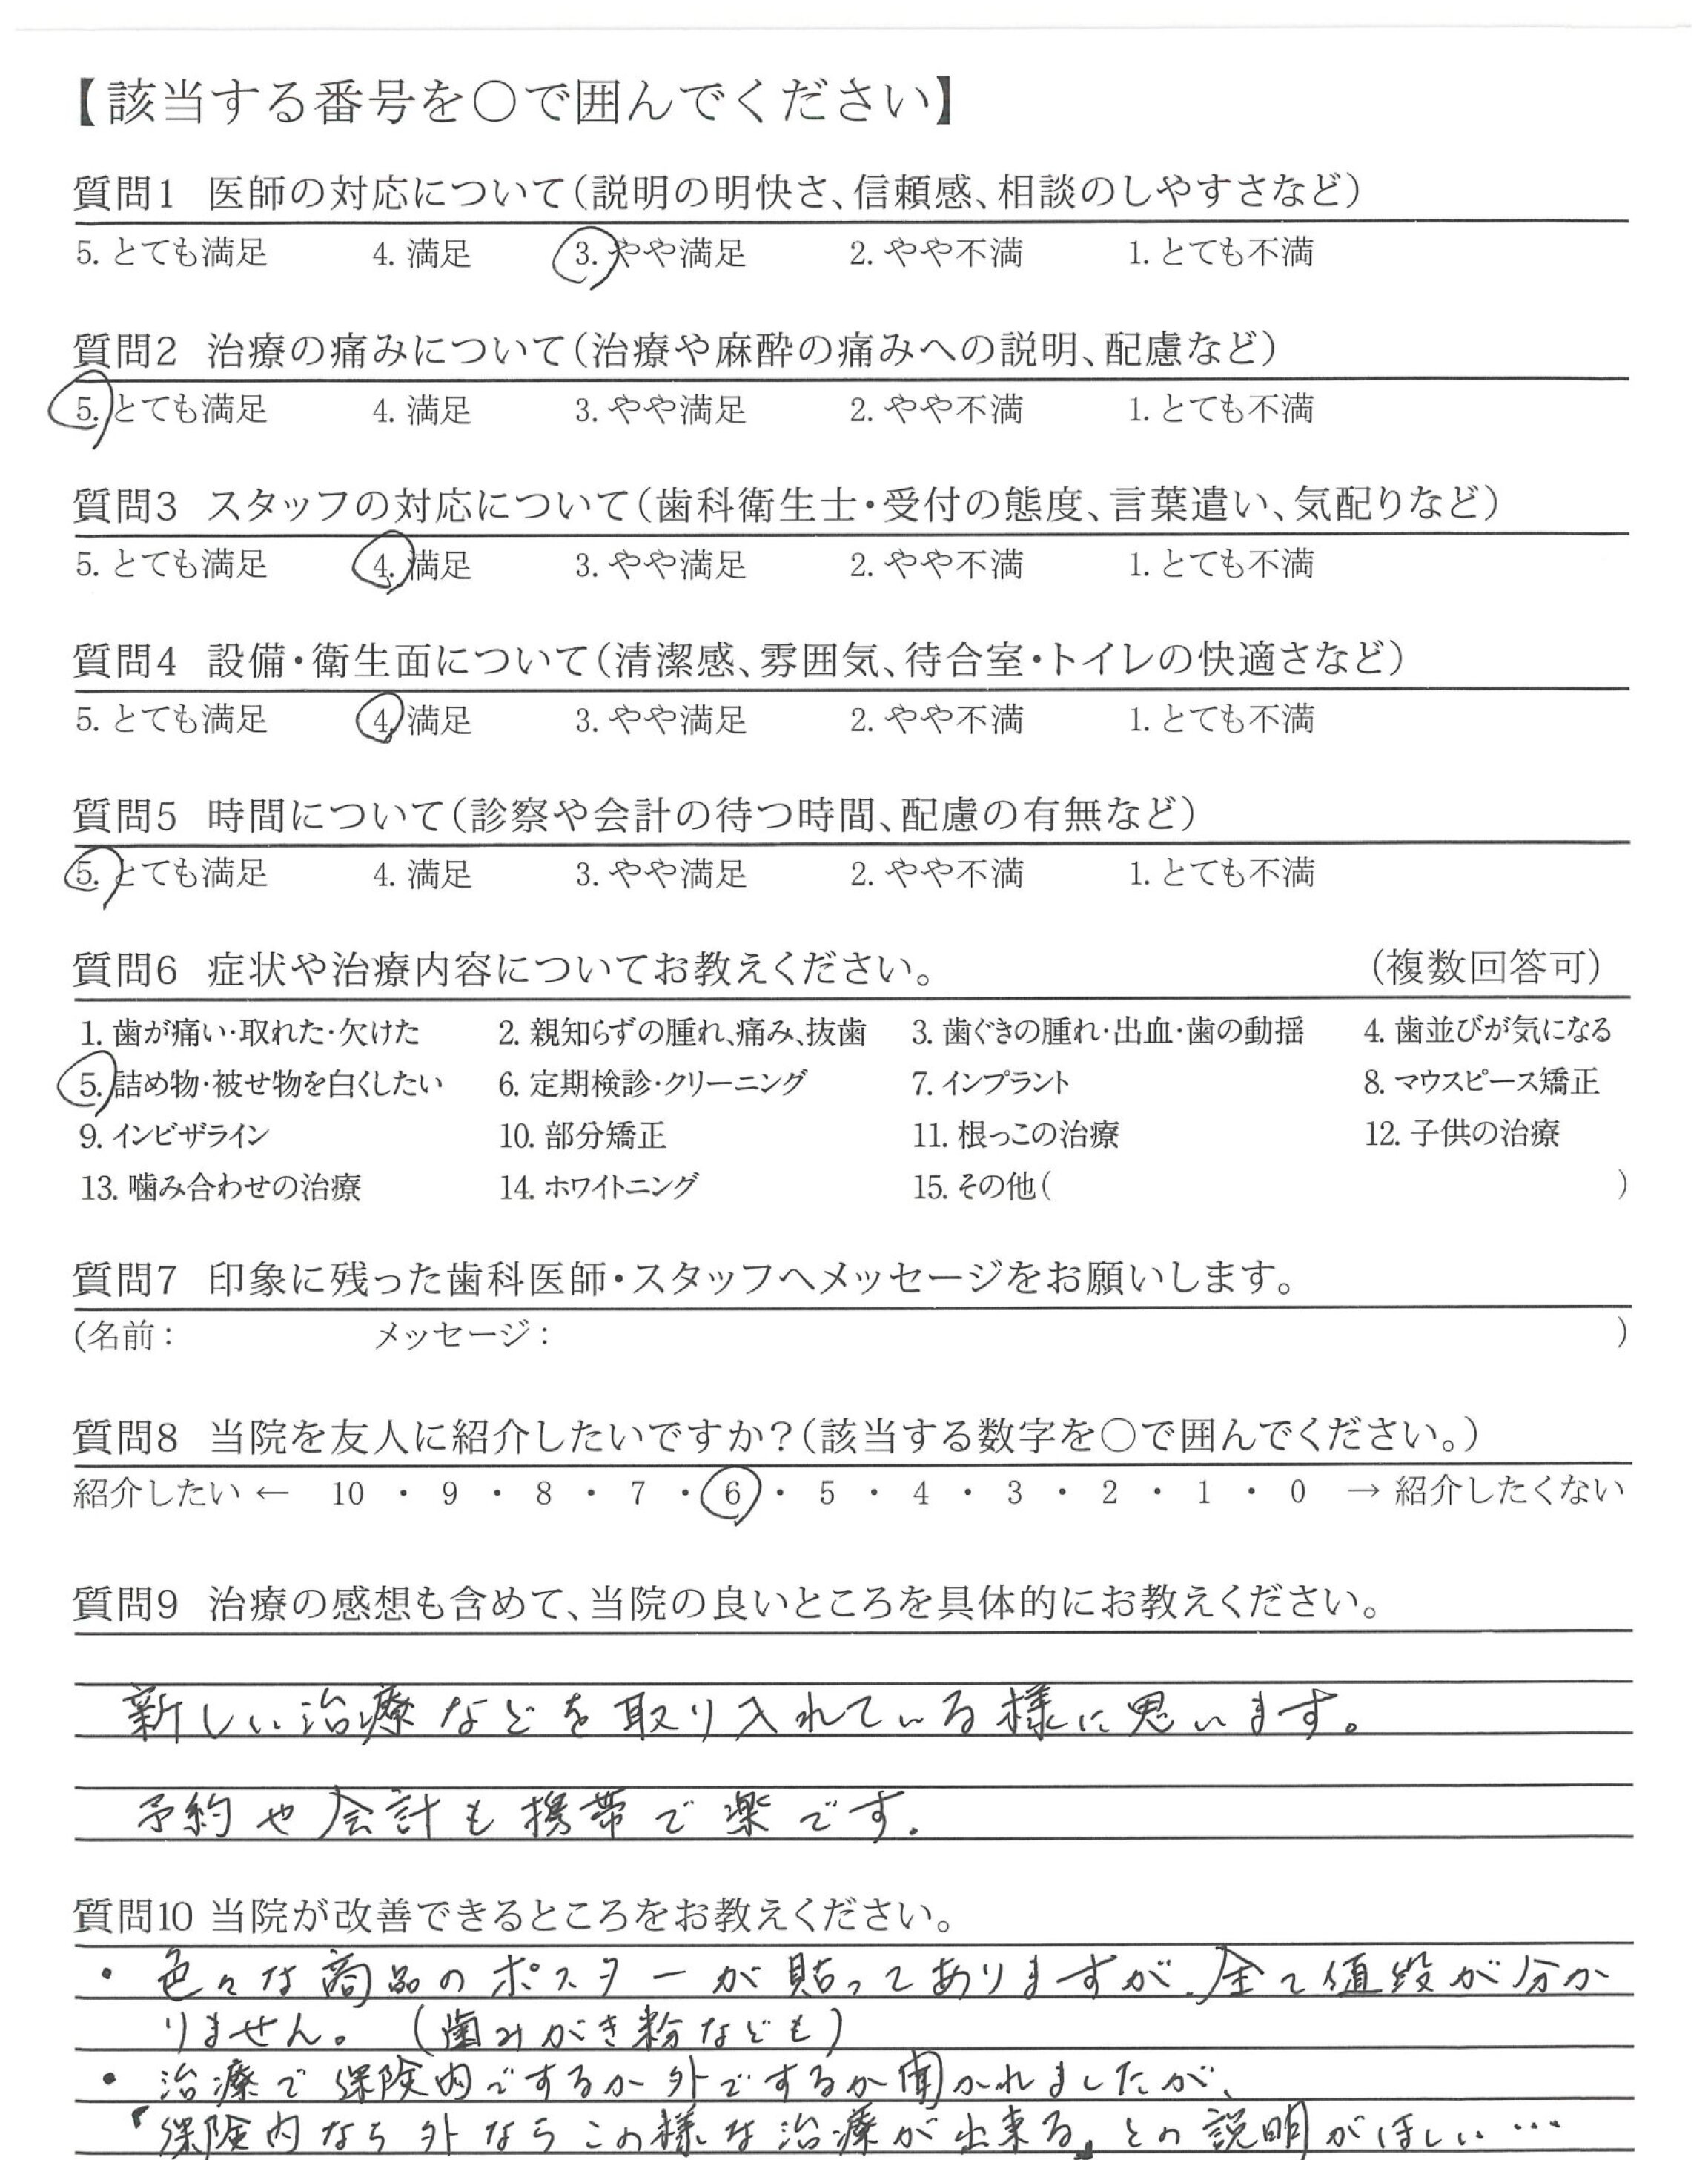 【該当する番号を○で囲んでください】
質問1 医師の対応について(説明の明快さ、信頼感、相談のしやすさなど)
5. とても満足 4. 満足 3. やや満足 2. やや不満 1. とても不満
質問2 治療の痛みについて(治療や麻酔の痛みへの説明、配慮など)
5. とても満足 4. 満足 3. やや満足 2. やや不満 1. とても不満
質問3 スタッフの対応について(歯科衛生士・受付の態度、言葉遣い、気配りなど)
5. とても満足 4. 満足 3. やや満足 2. やや不満 1. とても不満
質問4 設備・衛生面について(清潔感、雰囲気、待合室・トイレの快適さなど)
5. とても満足 4. 満足 3. やや満足 2. やや不満 1. とても不満
質問5 時間について(診察や会計の待つ時間、配慮の有無など)
5. とても満足 4. 満足 3. やや満足 2. やや不満 1. とても不満
質問6 症状や治療内容についてお教えください。 (複数回答可)
1. 歯が痛い・取れた・欠けた 2. 親知らずの腫れ、痛み、抜歯 3. 歯ぐきの腫れ・出血・歯の動揺 4. 歯並びが気になる
5. 詰め物・被せ物を白くしたい 6. 定期検診・クリーニング 7. インプラント 8. マウスピース矯正
9. インビザライン 10. 部分矯正 11. 根っこの治療 12. 子供の治療
13. 噛み合わせの治療 14. ホワイトニング 15. その他( )
質問7 印象に残った歯科医師・スタッフへメッセージをお願いします。
(名前: メッセージ: )
質問8 当院を友人に紹介したいですか?(該当する数字を○で囲んでください。)
紹介したい ← 10 ・ 9 ・ 8 ・ 7 ・ 6 ・ 5 ・ 4 ・ 3 ・ 2 ・ 1 ・ 0 → 紹介したくない
質問9 治療の感想も含めて、当院の良いところを具体的にお教えください。
新しい治療などを取り入れている様に思います。
予約や会計も携帯で楽です.
質問10 当院が改善できるところをお教えください。
・色々な商品のポスターが貼ってありますが、全て値段が分か
りません。(歯みがき粉なども)
・治療で保険内でするか外でするか聞かれましたが、
「保険内なら外ならこの様な治療が出来る」との説明がほしい…